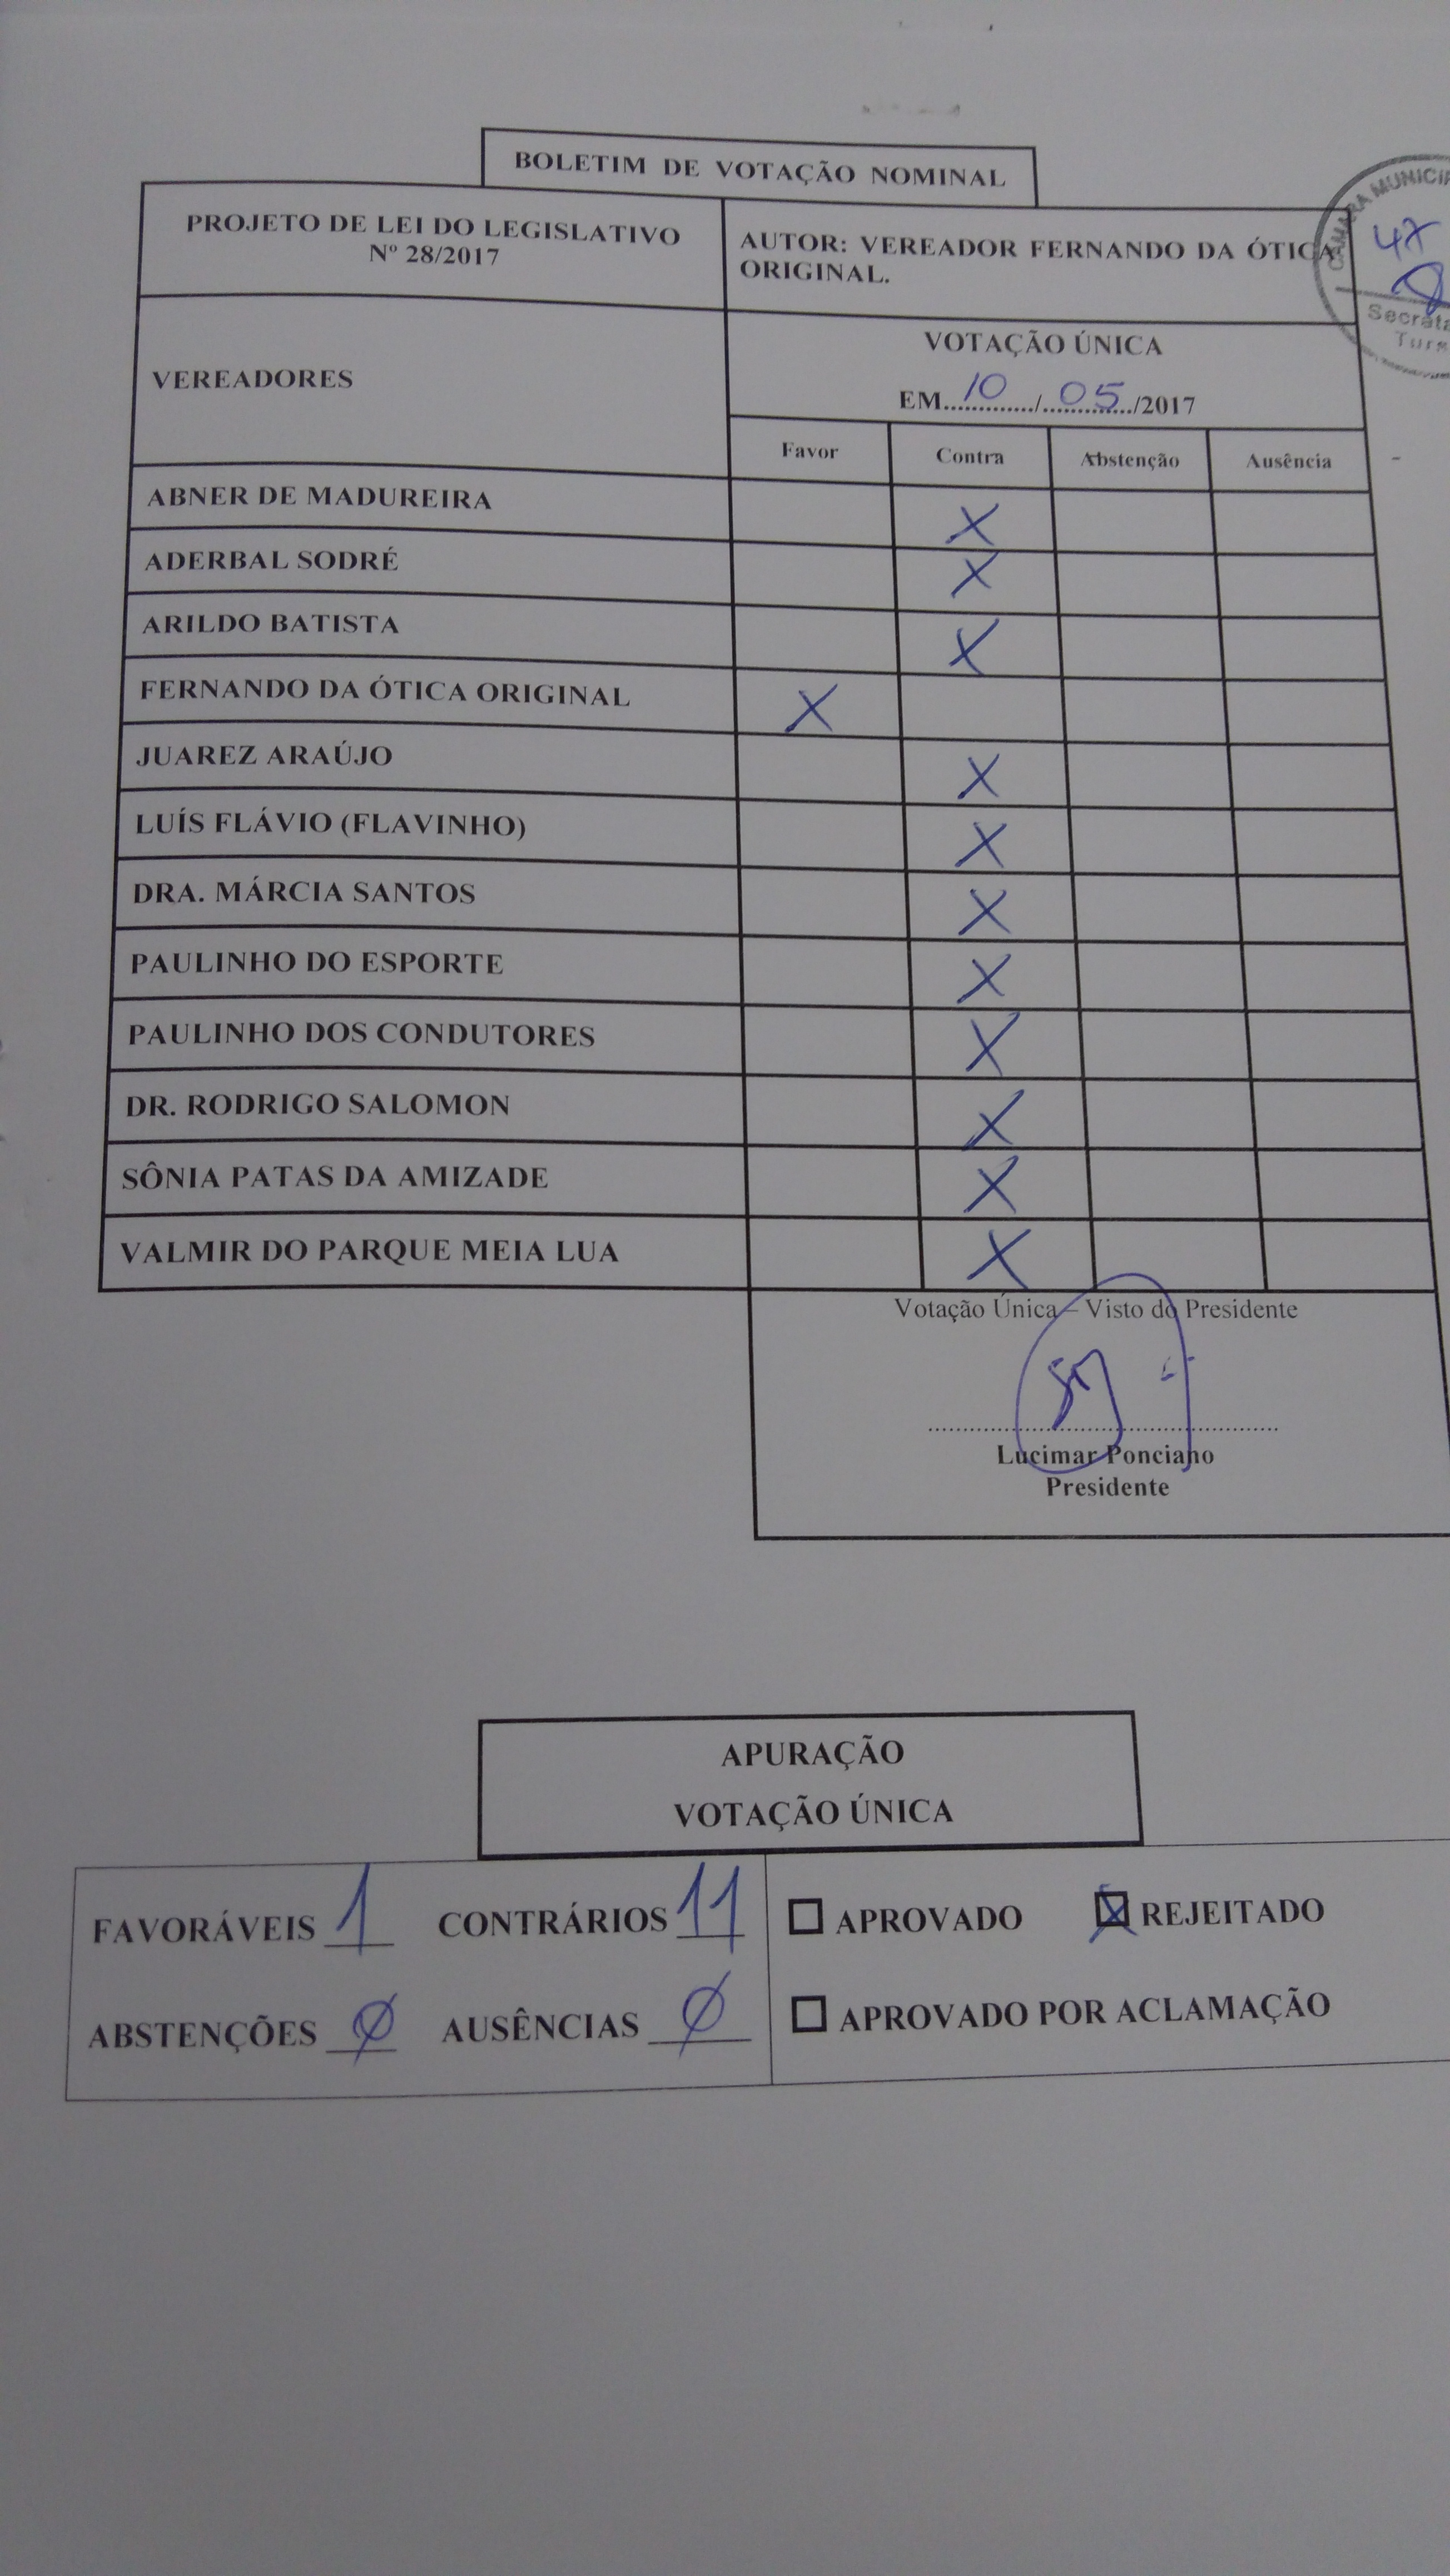 BOLETIM DE VOTAÇÃO NOMINAL
PROJETO DE LEI DO LEGISLATIVO
Nº 28/2017
AUTOR: VEREADOR FERNANDO DA ÓTICA
ORIGINAL.
CÂMARA MUNICIP
47
VEREADORES
VOTAÇÃO ÚNICA
EM 10 / 05 /2017
Favor Contra Abstenção Ausência
ABNER DE MADUREIRA X
ADERBAL SODRÉ X
ARILDO BATISTA X
FERNANDO DA ÓTICA ORIGINAL X
JUAREZ ARAÚJO X
LUÍS FLÁVIO (FLAVINHO) X
DRA. MÁRCIA SANTOS X
PAULINHO DO ESPORTE X
PAULINHO DOS CONDUTORES X
DR. RODRIGO SALOMON X
SÔNIA PATAS DA AMIZADE X
VALMIR DO PARQUE MEIA LUA X
Votação Única – Visto do Presidente
Lucimar Ponciano
Presidente
APURAÇÃO
VOTAÇÃO ÚNICA
FAVORÁVEIS 1 CONTRÁRIOS 11
ABSTENÇÕES Ø AUSÊNCIAS Ø
☐ APROVADO ☒ REJEITADO
☐ APROVADO POR ACLAMAÇÃO